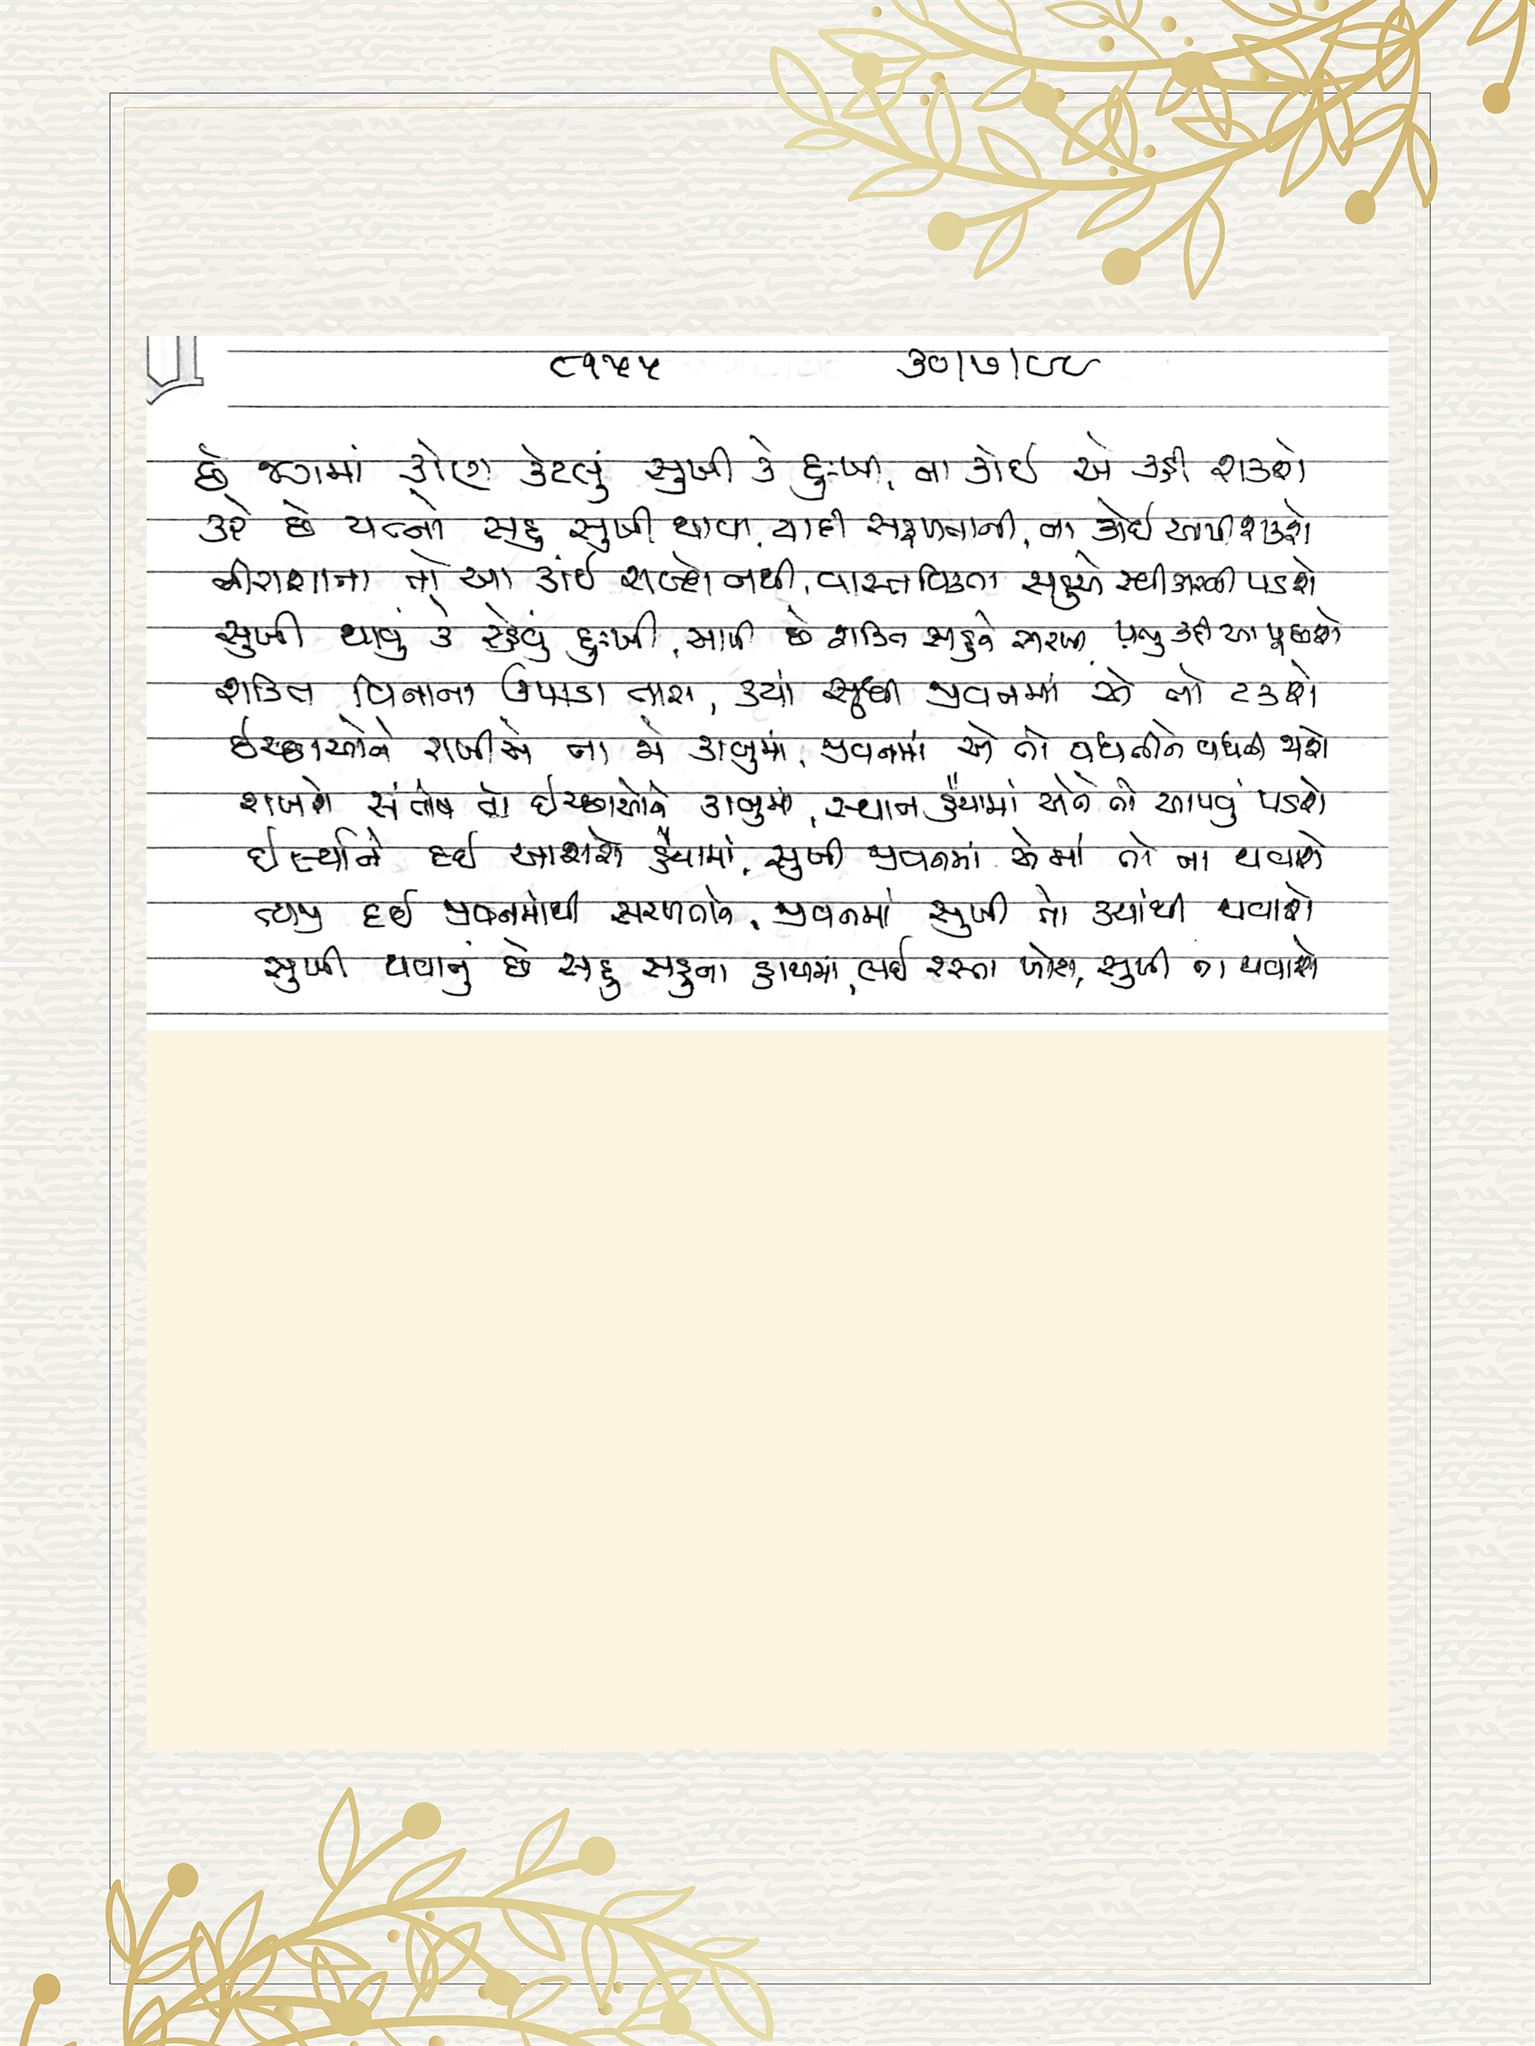 ૮૧૫૫ ૩૦/૭/૯૯
છે જગમાં કોણ કેટલું સુખી કે દુઃખી, ના કોઈ એ કહી શકશે
કરે છે યત્નો સહુ સુખી થાવા, યાદી સફળતાની, ના કોઈ આપી શકશે
નીરાશાના તો આ કાંઈ શબ્દો નથી, વાસ્તવિકતા સહુએ સ્વીકારવી પડશે
સુખી થાવું કે રહેવું દુઃખી, આપી છે શક્તિ સહુને સરખી, પ્રભુ કદી આ પૂછશે
શક્તિ વિનાના ઉપાડા તારા, ક્યાં સુધી જીવનમાં એ તો ટકશે
ઈચ્છાઓને રાખીશ ના જો કાબુમાં, જીવનમાં એ તો વધતીને વધતી જાશે
રાખશે સંતોષ તો ઈચ્છાઓને કાબુમાં, સ્થાન હૈયામાં એને તો આપવું પડશે
ઈર્ષ્યાને દઈ આશરો હૈયામાં, સુખી જીવનમાં એમાં તો ના થવાશે
ત્યજી દઈ જીવનમાંથી સરળતાને, જીવનમાં સુખી તો ક્યાંથી થવાશે
સુખી થવાનું છે સહુ સહુના હાથમાં, લઈ રસ્તા ખોટા, સુખી ના થવાશે